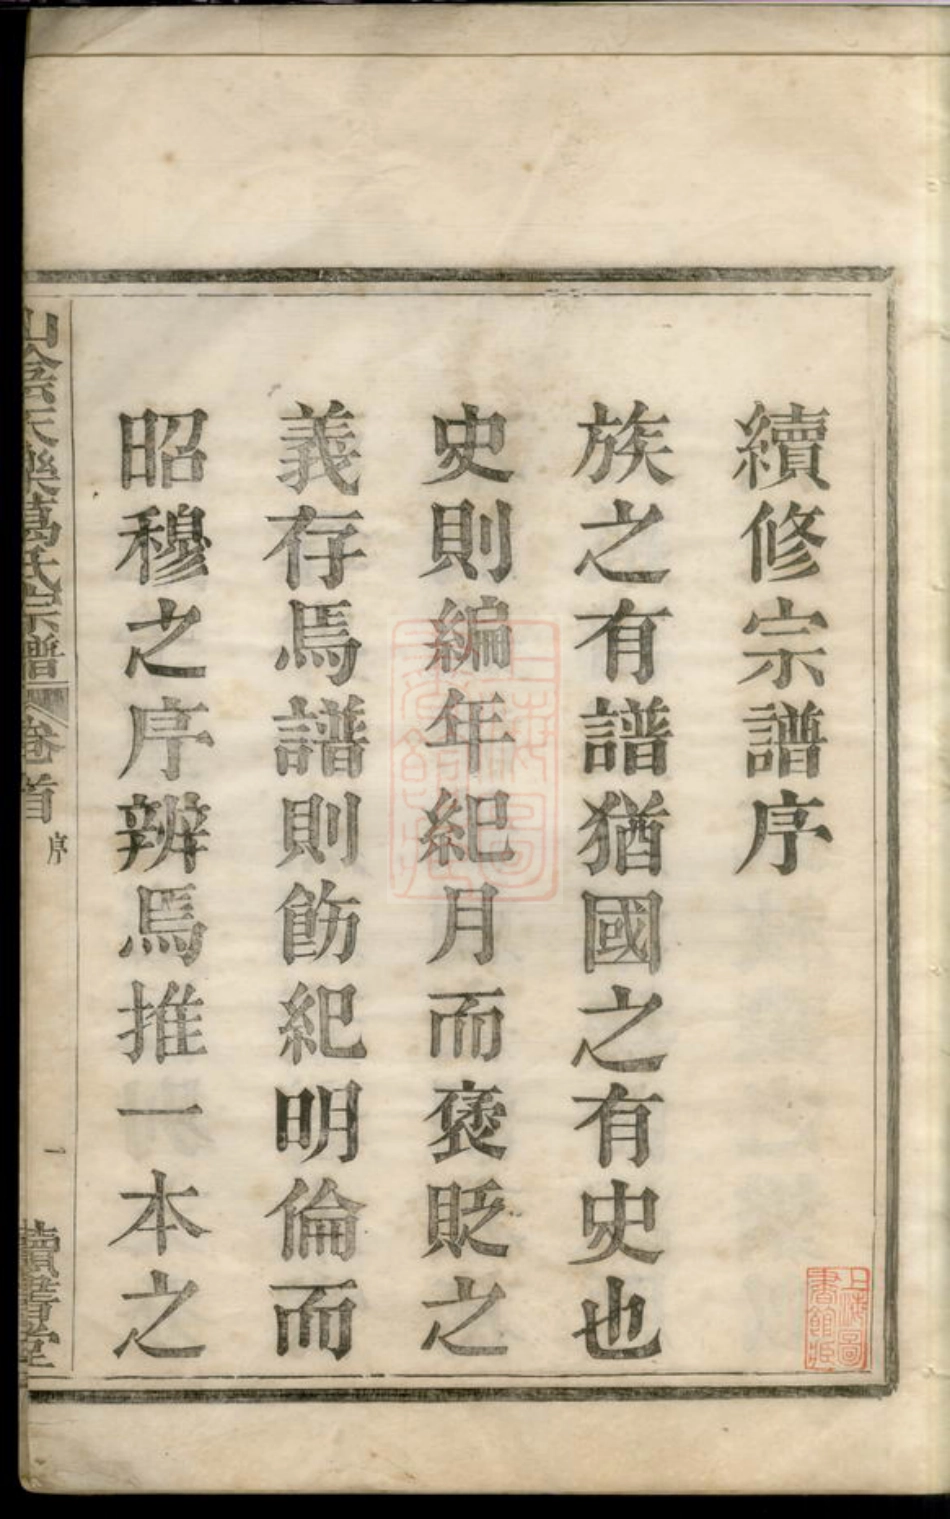 續修宗譜序
族之有譜猶國之有史也
史則編年紀月而褒貶之
義存焉譜則飭紀明倫而
昭穆之序辨焉推一本之
山陰天樂葛氏宗譜 卷首 序 一 讀書堂
上海圖書館藏
上海圖書館藏